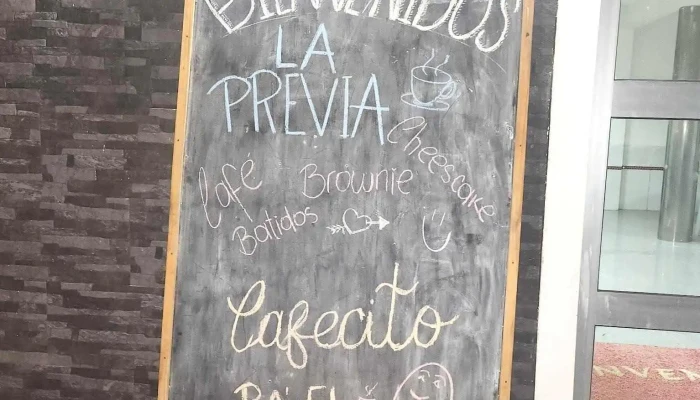 BIENVENIDOS
LA
PREVIA
Café Brownie Cheescake
Batidos
Cafecito